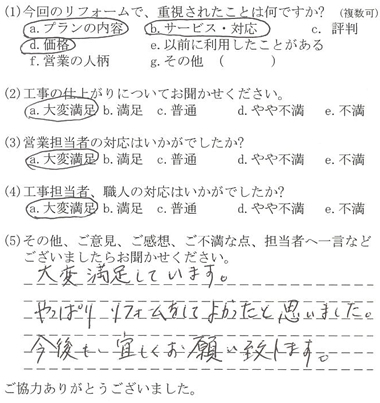 (1)今回のリフォームで、重視されたことは何ですか? (複数可)
a.プランの内容 b.サービス・対応 c. 評判
d.価格 e.以前に利用したことがある
f.営業の人柄 g.その他 ( )
(2)工事の仕上がりについてお聞かせください。
a.大変満足 b.満足 c.普通 d.やや不満 e.不満
(3)営業担当者の対応はいかがでしたか?
a.大変満足 b.満足 c.普通 d.やや不満 e.不満
(4)工事担当者、職人の対応はいかがでしたか?
a.大変満足 b.満足 c.普通 d.やや不満 e.不満
(5)その他、ご意見、ご感想、ご不満な点、担当者へ一言など
ございましたらお聞かせください。
大変満足しています。
やっぱり リフォームをしてよかったと思いました。
今後も 宜しくお願い致します。
ご協力ありがとうございました。